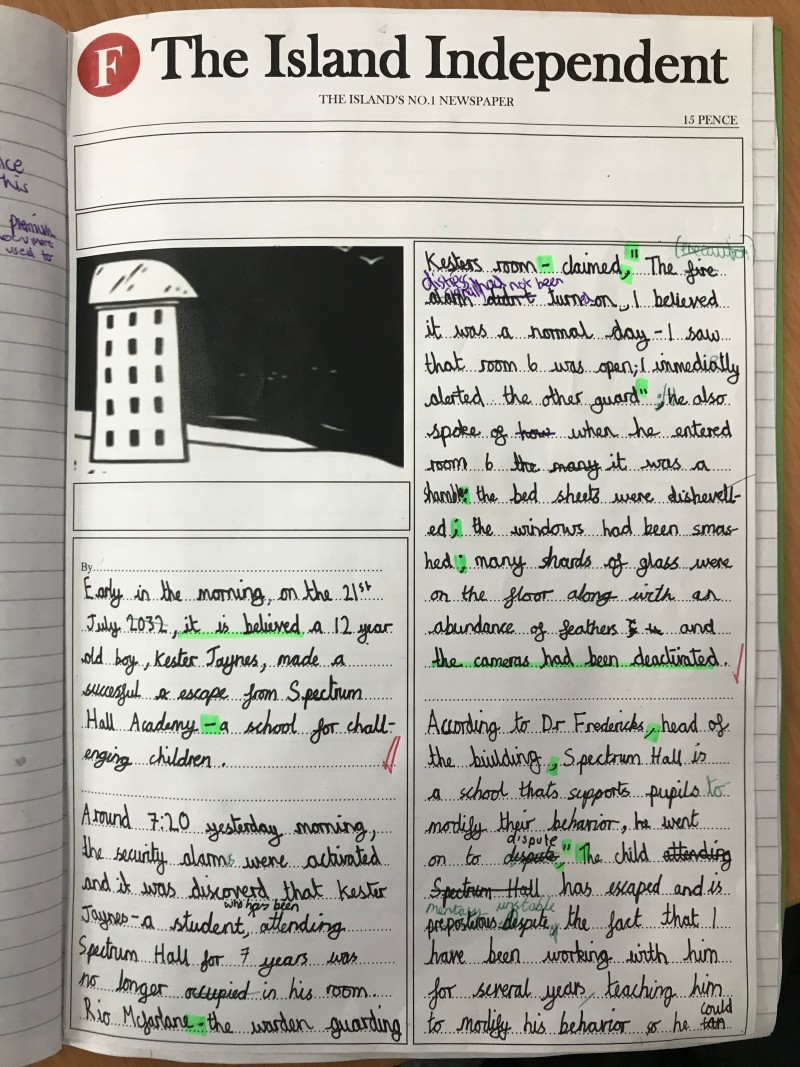 ice
this
premium
used to
F The Island Independent
THE ISLAND'S NO.1 NEWSPAPER
15 PENCE
By
Early in the morning, on the 21st
July 2032, it is believed a 12 year
old boy, Kester Jaynes, made a
succesful a escape from Spectrum
Hall Academy - a school for chall-
enging children.
Around 7:20 yesterday morning,
the security alarms were activated
and it was discoverd that Kester
who has been
Jaynes - a student, attending
Spectrum Hall for 7 years was
no longer occupied in his room.
Rio Mcfarlane - the warden guarding
(precaution)
Kesters room - claimed, "The fire
distress signal had not been
alarm didn't turned on, I believed
it was a normal day - I saw
that room 6 was open; I immediatly
alerted the other guard"; He also
spoke of how when he entered
room 6 the many it was a
shamble: the bed sheets were dishevell-
ed; the windows had been smas-
hed; many shards of glass were
on the floor along with an
abundance of feathers and
the cameras had been deactivated.
According to Dr Fredericks, head of
the biuilding, Spectrum Hall is
a school thats supports pupils to
modify their behavior, he went
dispute
on to despute, "The child attending
Spectrum Hall has escaped and is
mentaly unstable
preposterous despute, the fact that I
have been working with him
for several years, teaching him
could
to modify his behavior so he can